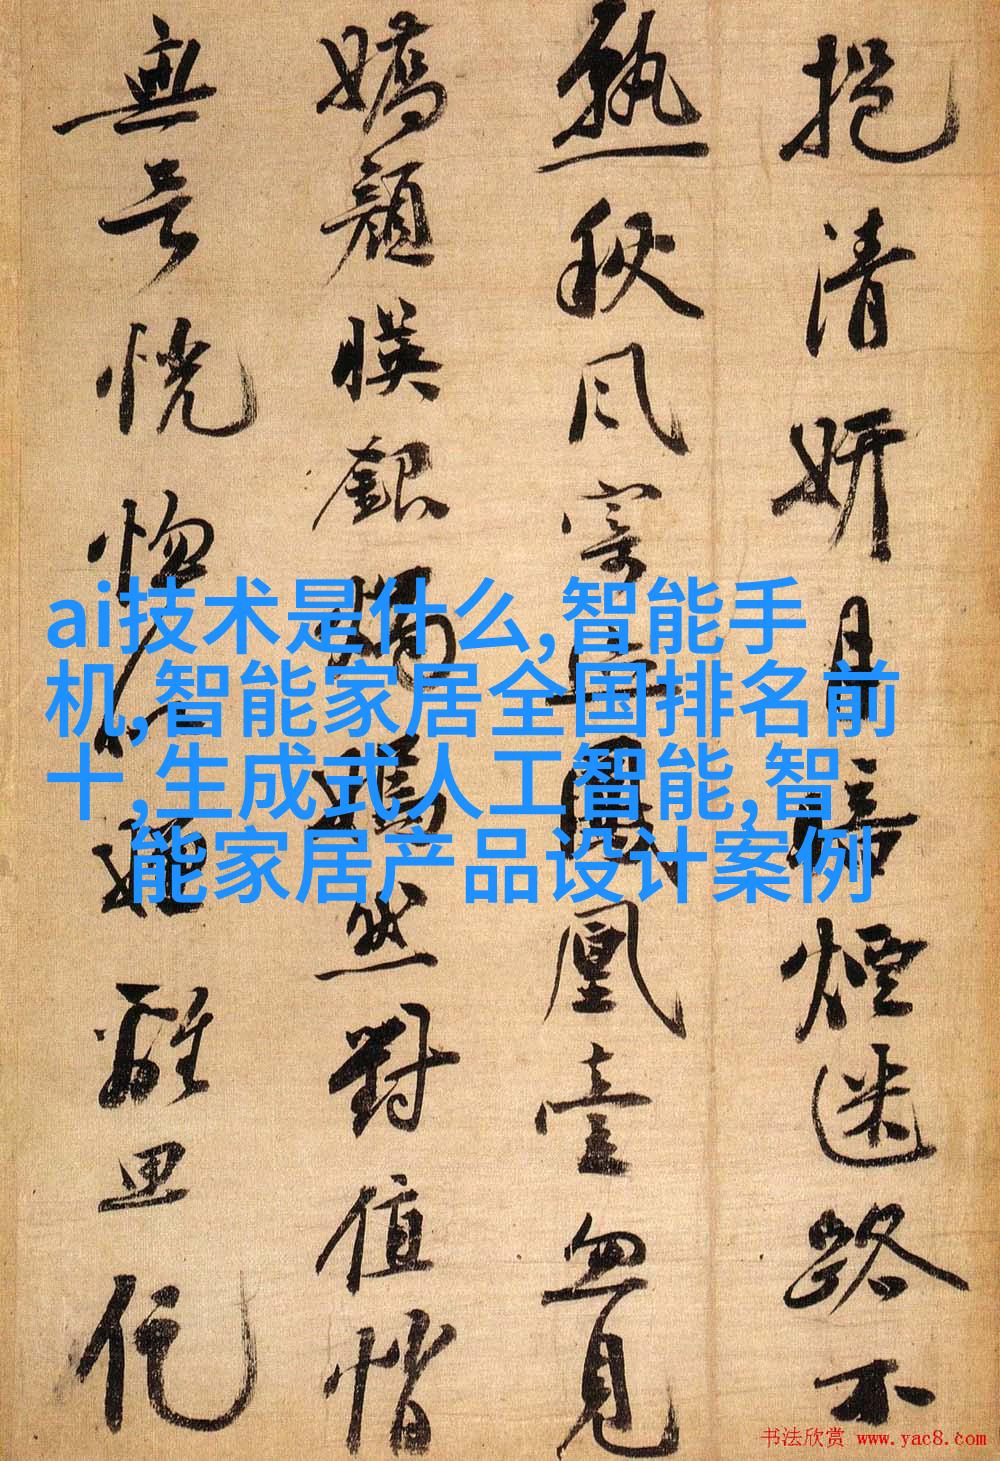 挹清妍月煙迷路不
秋风寄鳳凰臺忽見
嬌顏暎銀燭嫣然對值悄
無言恍惚
ai技术是什么,智能手
机,智能家居全国排名前
十,生成式人工智能,智
能家居产品设计案例
书法欣赏 www.yac8.com